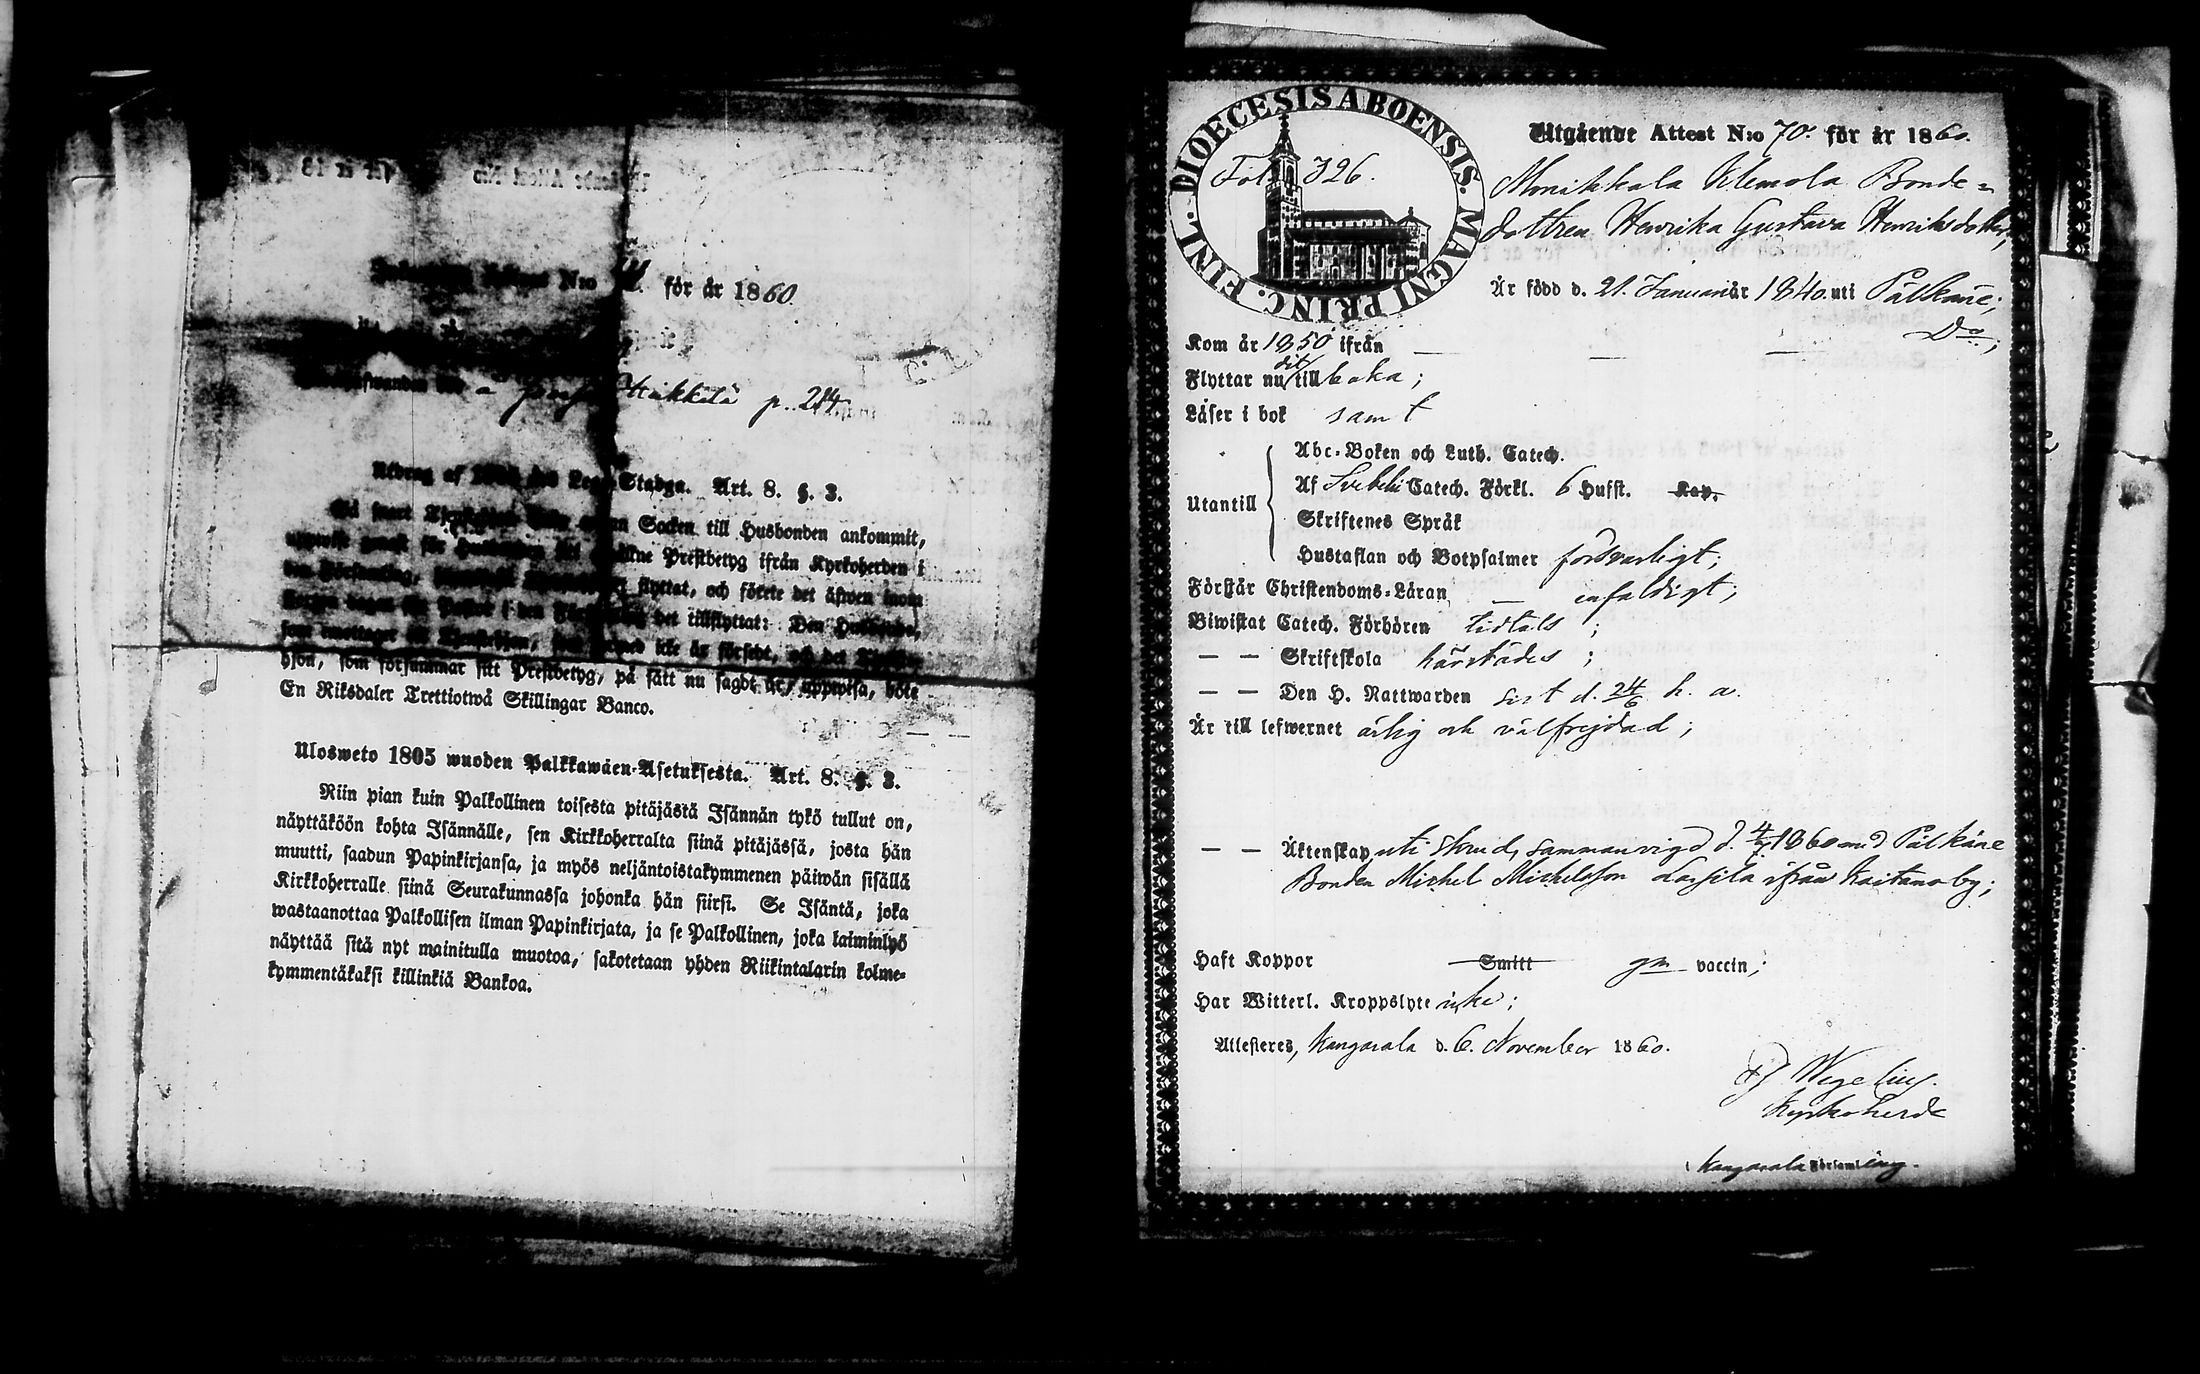 för år 1860.
Heikkilä p. 214
Utdrag af Lego Stadga. Art. 8. §. 3.
Så snart Socken till Husbonden ankommit,
Prestbetyg ifrån Kyrkoherden i
flyttat, och förete det äfwen inom
det tillflyttat: Den
icke är försedt, och det
hjon, som försummar sitt Prestbetyg, på sätt nu sagdt är, uppwisa, böte
En Riksdaler Trettiotwå Skillingar Banco.
Ulosweto 1805 wuoden Palkkawäen-Asetuksesta. Art. 8. §. 3.
Niin pian kuin Palkollinen toisesta pitäjästä Isännän tykö tullut on,
näyttäköön kohta Isännälle, sen Kirkkoherralta siinä pitäjässä, josta hän
muutti, saadun Papinkirjansa, ja myös neljäntoistakymmenen päiwän sisällä
Kirkkoherralle siinä Seurakunnassa johonka hän siirsi. Se Isäntä, joka
wastaanottaa Palkollisen ilman Papinkirjata, ja se Palkollinen, joka laiminlyö
näyttää sitä nyt mainitulla muotoa, sakotetaan yhden Riikintalarin kolme-
kymmentäkaksi killinkiä Bankoa.
DIOECESIS ABOENSIS. MAGNI PRINC. FINL.
Fol. 326.
Utgående Attest N:o 70. för år 1860.
Monikkala Klemola Bonde=
dottren Henrika Gustava Henriksdotter,
Är född d. 21. Januari år 1840. uti Pälkäne;
Kom år 1850 ifrån — — — Do;
Flyttar nu dit till baka;
Läser i bok samt
Utantill
Abc-Boken och Luth. Catech.
Af Svebelii Catech. Förkl. 6 Hufst. Kap.
Skriftenes Språk
Hustaflan och Botpsalmer försvarligt;
Förstår Christendoms-Läran — enfaldigt;
Biwistat Catech. Förhören tidtals;
— — Skriftskola härstädes;
— — Den H. Nattwarden sist d. 24/6 h. a.
Är till lefwernet ärlig och välfrejdad;
— — Äktenskap uti stånd, sammanvigd d. 4/11 1860 med Pälkäne
Bonden Michel Michelsson Lassila ifrån Kaitamo by;
Haft Koppor Smitt gm vaccin;
Har Witterl. Kroppslyte icke;
Attesteres, Kangasala d. 6. November 1860.
Wegelius.
Kyrkoherde
i Kangasala Församling.